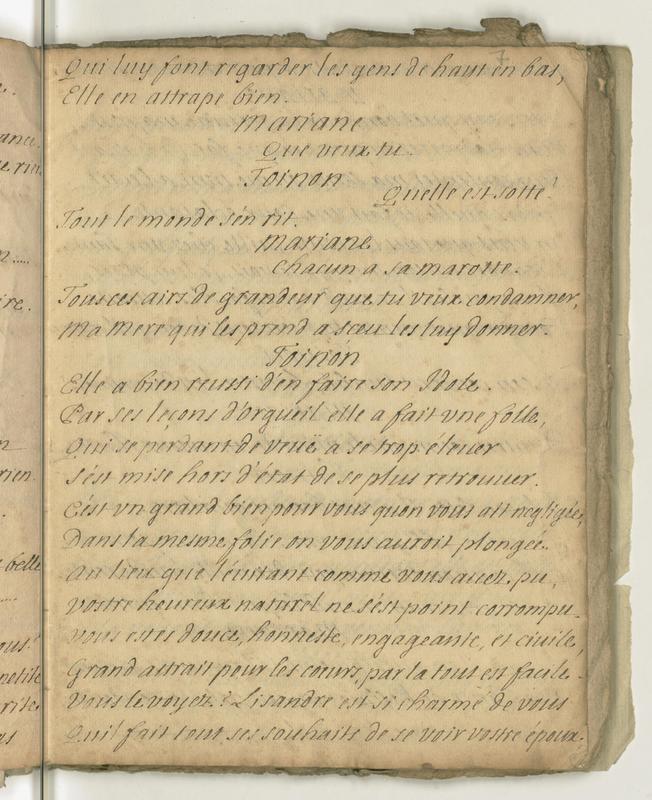 7
Qui luy font regarder les gens de haut en bas,
Elle en attrape bien.
Mariane
Que veux tu.
Toinon
Quelle est sotte!
Tout le monde s'en rit.
Mariane
Chacun a sa marotte.
Tous ces airs de grandeur que tu veux condamner,
Ma Mere qui les prend a sceu les luy donner.
Toinon
Elle a bien reussi d'en faire son Idole.
Par ses leçons d'orgueil elle a fait vne folle,
Qui se perdant de veuë a se trop éleuer
S'est mise hors d'état de se plus retrouuer.
C'est vn grand bien pour vous quon vous ait negligée,
Dans la mesme folie on vous auroit plongée.
Au lieu que l'éuitant comme vous auez pu,
Vostre heureux naturel ne s'est point corrompu.
Vous estes douce, honneste, engageante, et ciuile,
Grand attrait pour les cœurs, par la tout est facile.
Vous le voyez? Lisandre est si charmé de vous
Quil fait tout ses souhaits de se voir vostre époux.